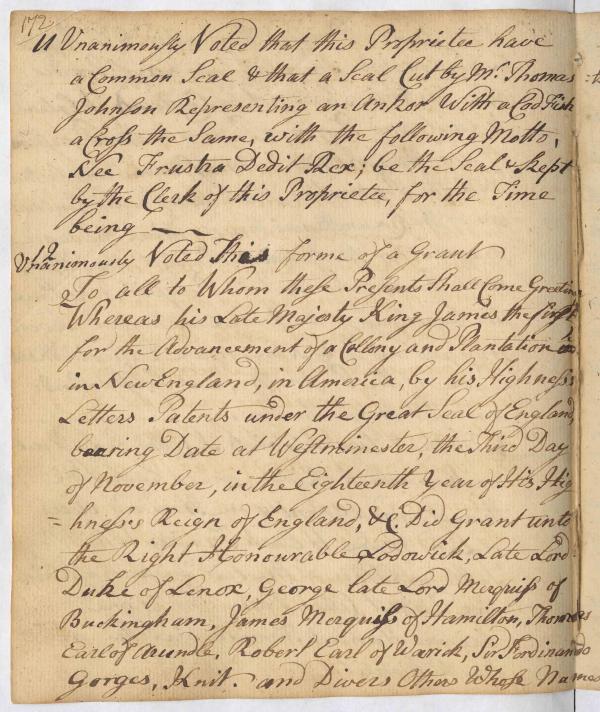 172
11 Unanimously Voted that this Proprietee have
a Common Seal & that a Seal Cut by Mr. Thomas
Johnson Representing an Ankor With a Cod Fish
a Cross the Same, with the following Motto,
Nec Frustra Dedit Rex; be the Seal & Kept
by the Clerk of this Proprietee, for the Time
being
12
Unanimously Voted This forme of a Grant
To all to Whom these Presents Shall Come Greeting
Whereas his Late Majesty King James the first
for the Advancement of a Collony and Plantation
in New England, in America, by his Highness's
Letters Patents under the Great Seal of England,
bearing Date at Westminester, the Third Day
of November, in the Eighteenth Year of His Hig
=hness's Reign of England, &C. Did Grant unto
the Right Honourable Lodowick, Late Lord
Duke of Lenox, George late Lord Merquiss of
Buckingham, James Merquiss of Hamilton, Thommas
Earl of Arundle, Robert Earl of Warick, Sir Ferdinando
Gorges, Knit. and Divers Others Whose Names